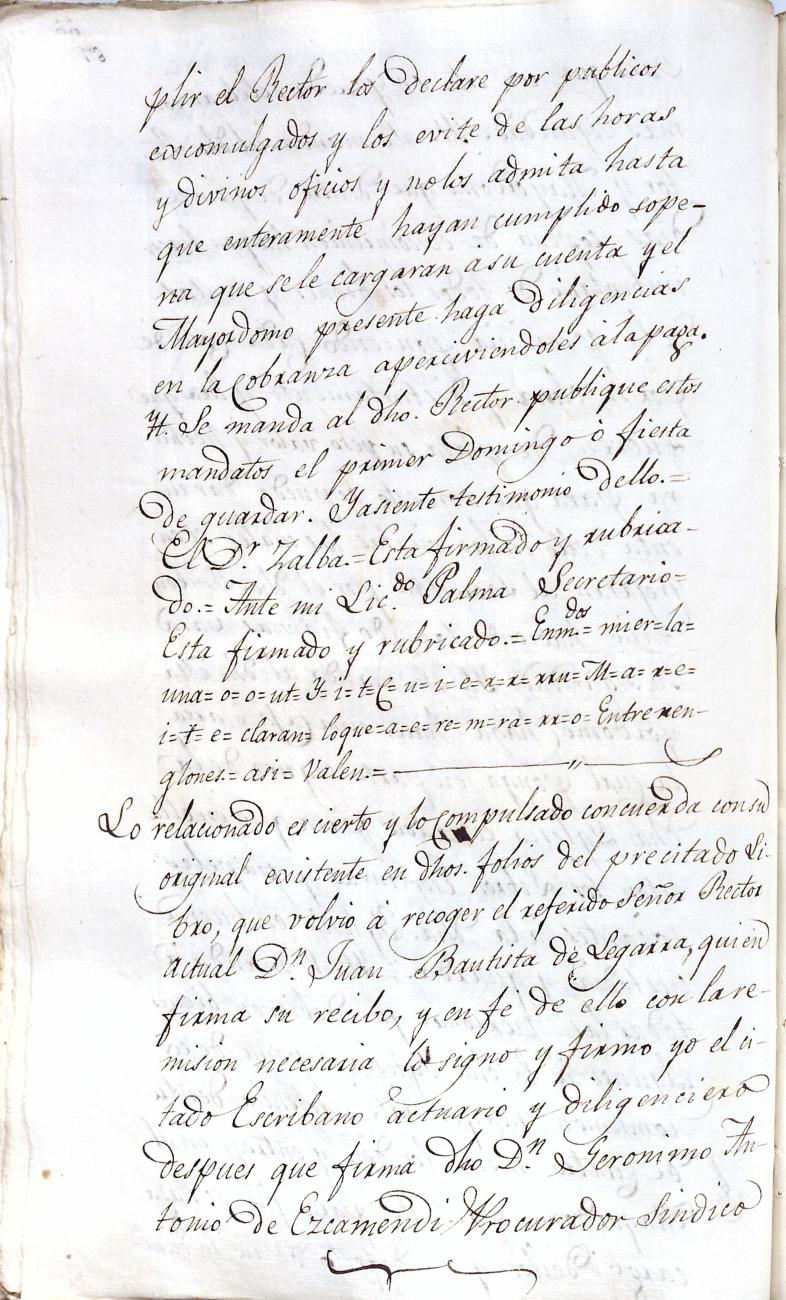 plir el Rector los declare por publicos
excomulgados y los evite de las horas
y divinos oficios y nolos admita hasta
que enteramente hayan cumplido sope-
na que sele cargaran àsu cuenta y el
Mayordomo presente haga diligencias
en la Cobranza aperciviendoles àla paga.
Yt. Se manda al dho. Rector publique estos
mandatos el primer Domingo ò fiesta
de guardar. Yasiente testimonio dello.=
El Dr. Zalba.= Esta firmado y rubrica-
do.= Ante mi Licdo. Palma Secretario=
Esta firmado y rubricado.= Enmdos.= mier=la=
una= o= o= ut= Y= i= t= C= u= i= e= r= r= rru= M= a= r= e=
i= t= e= claran= loque=a=e= re= m= ra= rr= o= Entrerren-
glones.= asi= Valen.=
Lo relacionado es cierto y lo Compulsado concuerda con su
original existente en dhos. folios del precitado Li-
bro, que volvio à recoger el referido Señor Rector
actual Dn. Juan Bautista de Legarra, quien
firma su recibo, y en fé de ello con la re-
mision necesaria lo signo y firmo yo el ci-
tado Escribano actuario y diligenciero
despues que firma dho Dn. Geronimo An-
tonio de Ezcamendi Procurador Sindico